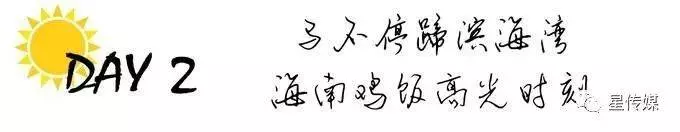 DAY 2
子不停蹄滨海湾
海南鸡饭高光时刻
星传媒